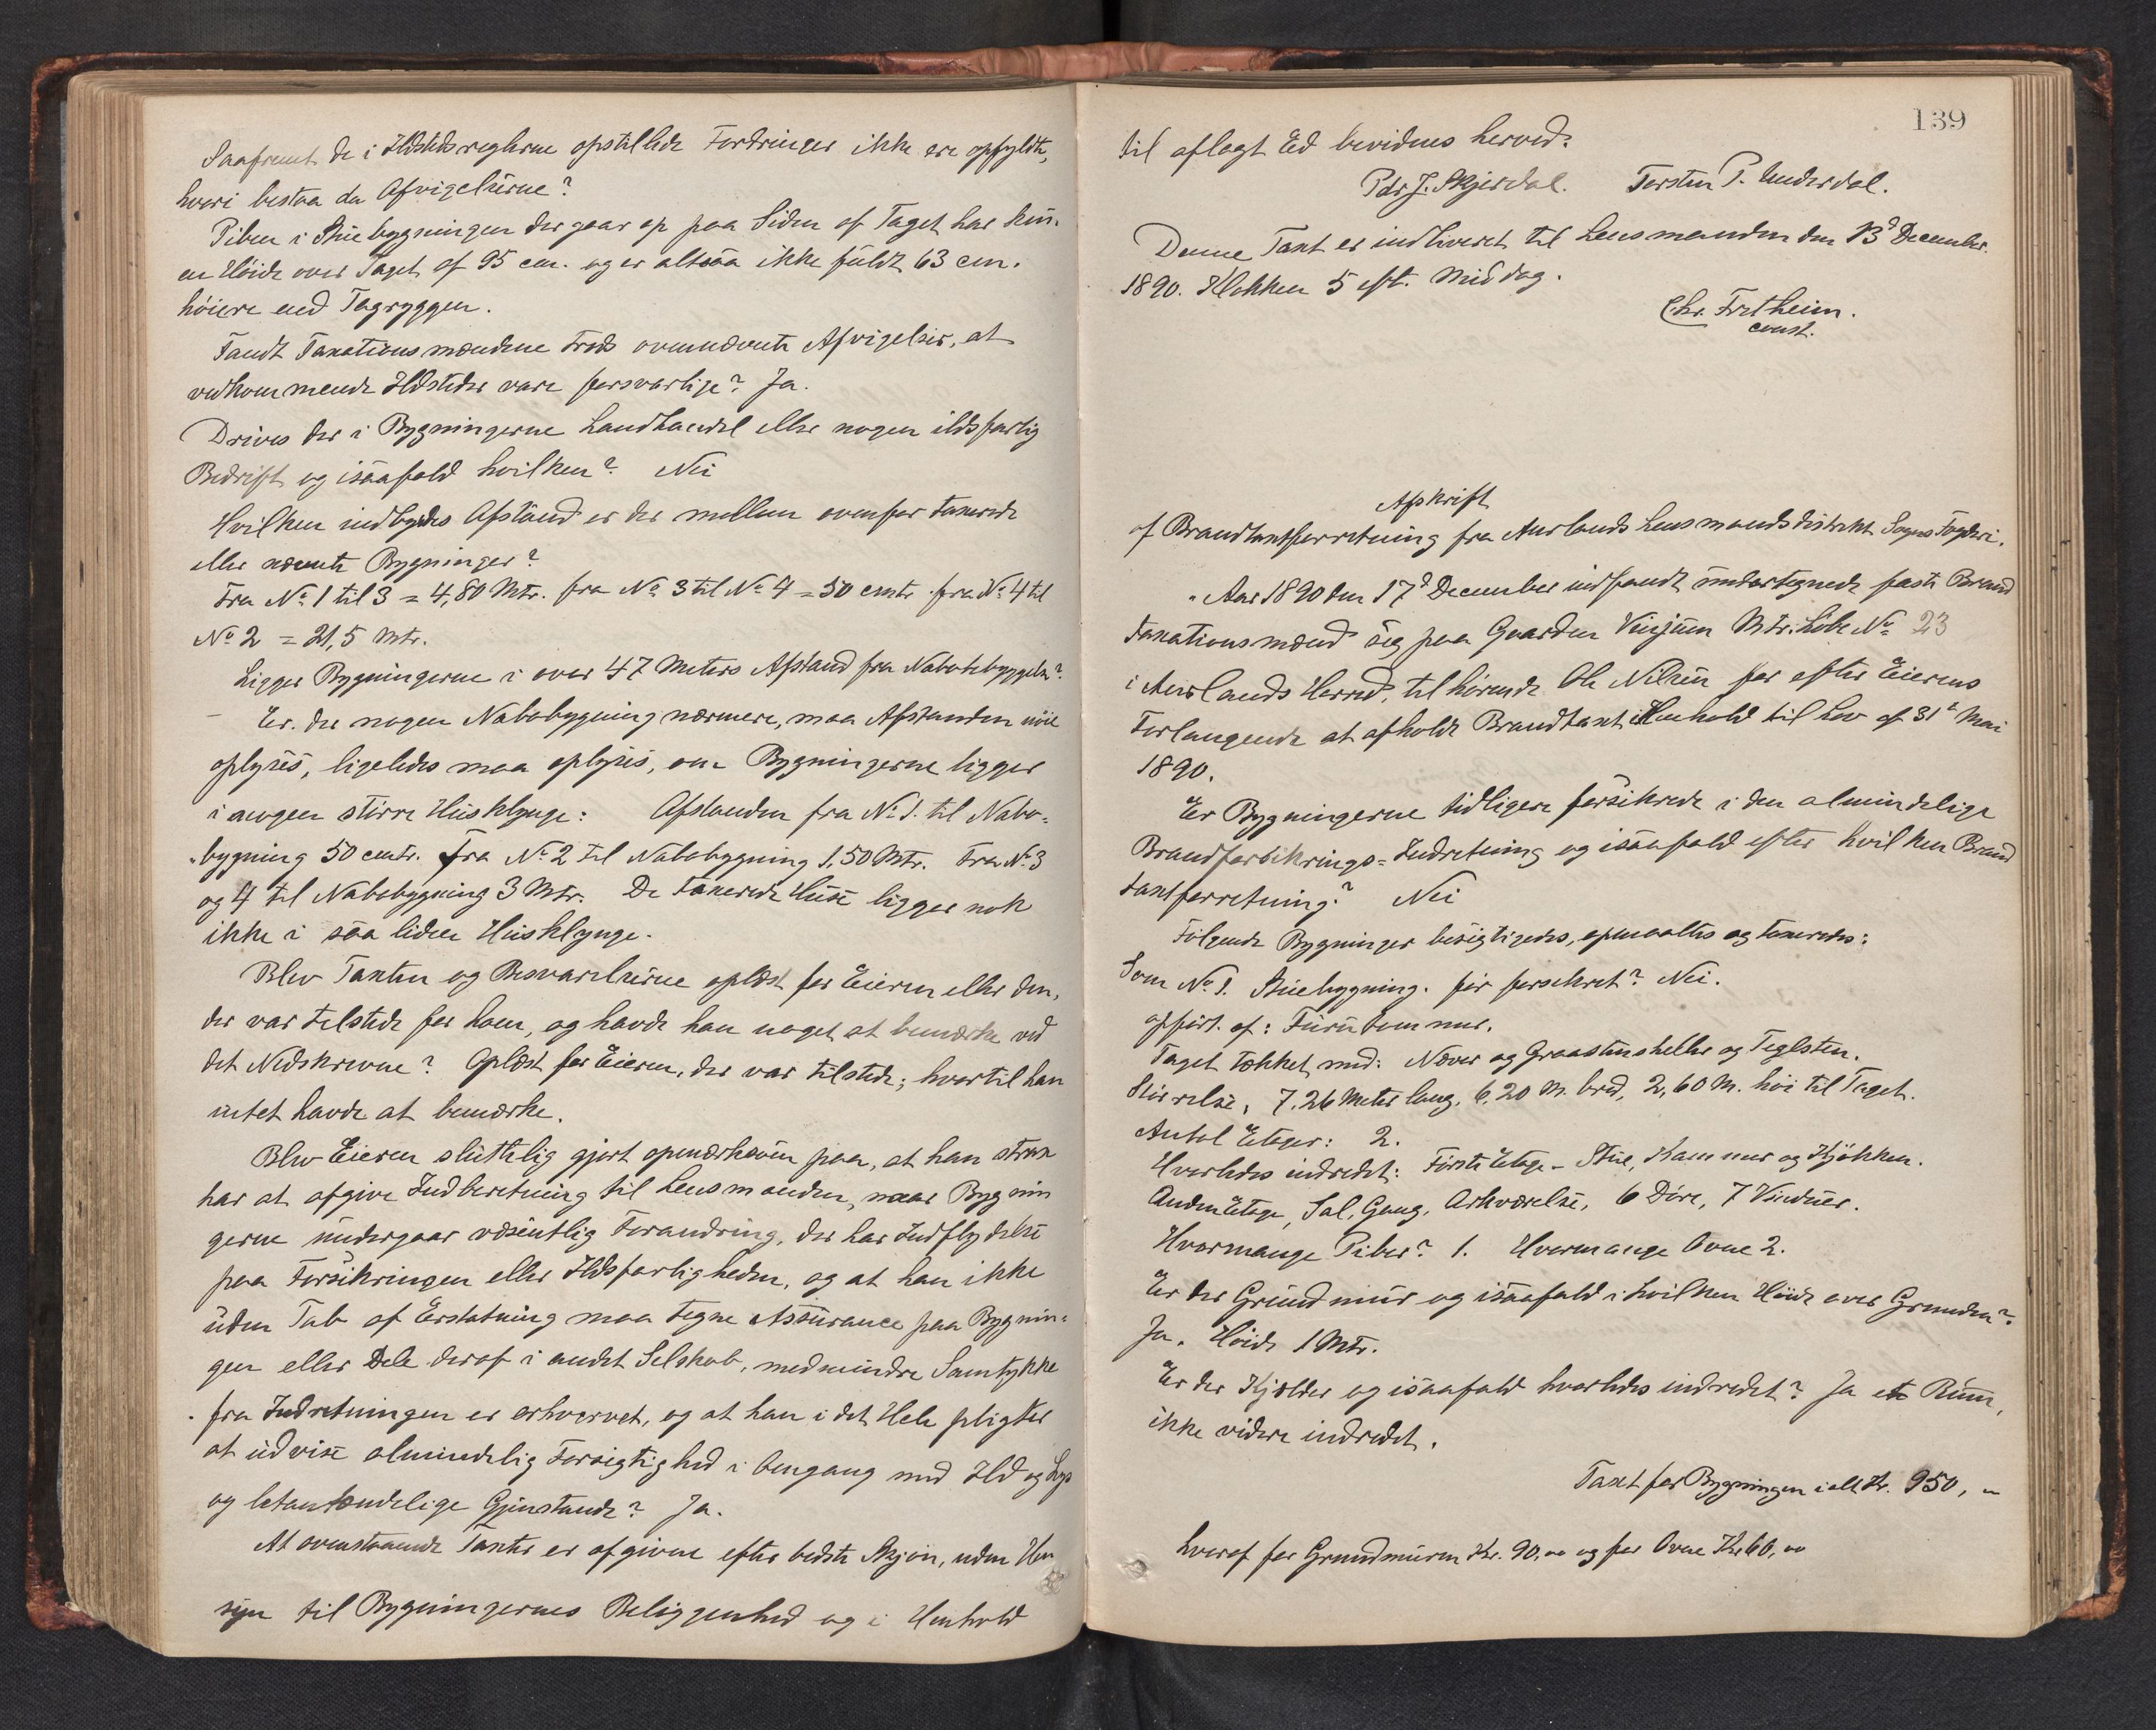 Saafremt de i Ildstedsreglerne opstillede Fordringer ikke ere opfyldte,
hvori bestaa da Afvigelserne?
Piben i Stuebygningen der gaar op paa Siden af Taget har kun
en Høide over Taget af 95 cm. og er altsaa ikke fuldt 63 cm.
høiere end Tagryggen.
Fandt Taxationsmændene trods ovennævnte Afvigelser, at
vedkommende Ildsteder vare forsvarlige? Ja.
Drives der i Bygningerne Landhandel eller nogen ildsfarlig
Bedrift og isaafald hvilken? Nei
Hvilken indbyrdes Afstand er der mellem ovenfor taxerede
eller nævnte Bygninger?
Fra No 1 til 3 = 4,80 Mtr. fra No 3 til No 4 = 50 cmtr. fra No 4 til
No 2 = 21,5 Mtr.
Ligger Bygningerne i over 47 Meters Afstand fra Nabobebyggelse?
Er der nogen Nabobygning nærmere, maa Afstanden nöie
oplyses, ligeledes maa oplyses, om Bygningerne ligger
i nogen större Husklynge: Afstanden fra No 1. til Nabo-
bygning 50 cmtr. Fra No 2 til Nabobygning 1,50 Mtr. Fra No 3
og 4 til Nabobygning 3 Mtr. De taxerede Huse ligger nok
ikke i saa liden Husklynge.
Blev Taxten og Besvarelserne oplæst for Eieren eller den,
der var tilstede for ham, og havde han noget at bemærke ved
det Nedskrevne? Oplæst for Eieren, der var tilstede; hvortil han
intet havde at bemærke.
Blev Eieren sluttelig gjort opmærksom paa, at han strax
har at afgive Indberetning til Lensmanden, naar Bygnin
gerne undergaar væsentlig Forandring, der har Indflydelse
paa Forsikringen eller Ildsfarligheden, og at han ikke
uden Tab af Erstatning maa tegne Assurance paa Bygnin-
gen eller Dele deraf i andet Selskab, medmindre Samtykke
fra Indretningen er erhvervet, og at han i det Hele pligter
at udvise almindelig Forsigtighed i Omgang med Ild og Lys
og letantændelige Gjenstande? Ja.
At ovenstaaende Taxter er afgivne efter bedste Skjøn, uden Hen
syn til Bygningernes Beliggenhed og i Henhold
139
til aflagt Ed bevidnes herved.
Pdr J. Skjerdal. Torsten P. Underdal.
Denne Taxt er indleveret til Lensmanden den 13d December
1890. Klokken 5 eft. Middag.
Chr. Fretheim.
const.
Afskrift
af Brandtaxtforretning fra Aurlands Lensmandsdistrikt Sogns Fogderi.
"Aar 1890 den 17d December indfandt undertegnede faste Brand
taxationsmænd sig paa Gaarden Vinjum Mtr. Löbe No 23
i Aurlands Herred, tilhørende Ole Nilsen for efter Eierens
Forlangende at afholde Brandtaxt i Henhold til Lov af 31te Mai
1890.
Er Bygningerne tidligere forsikrede i den almindelige
Brandforsikrings-Indretning og isaafald efter hvilken Brand
taxtforretning? Nei
Følgende Bygninger besigtigedes, opmaaltes og taxeredes:
Som No 1. Stuebygning. før forsikret? Nei.
opført af: Furutømmer.
Taget tækket med: Næver og Graastenshelle og Teglsten.
Størrelse, 7,26 Meter lang, 6,20 M. bred, 2,60 M. høi til Taget.
Antal Etager: 2.
Hvorledes indredet: Første Etage – Stue, Kammer og Kjøkken.
Anden Etage, Sal, Gang, Arkværelse, 6 Døre, 7 Vinduer.
Hvormange Piber? 1. Hvormange Ovne 2.
Er der Grundmur og isaafald i hvilken Høide over Grunden?
Ja. Høide 1 Mtr.
Er der Kjælder og isaafald hvorledes indredet? Ja et Rum,
ikke videre indredet.
Taxt for Bygningen i alt Kr. 950, "
hvoraf for Grundmuren Kr. 90,00 og for Ovne Kr. 60,00